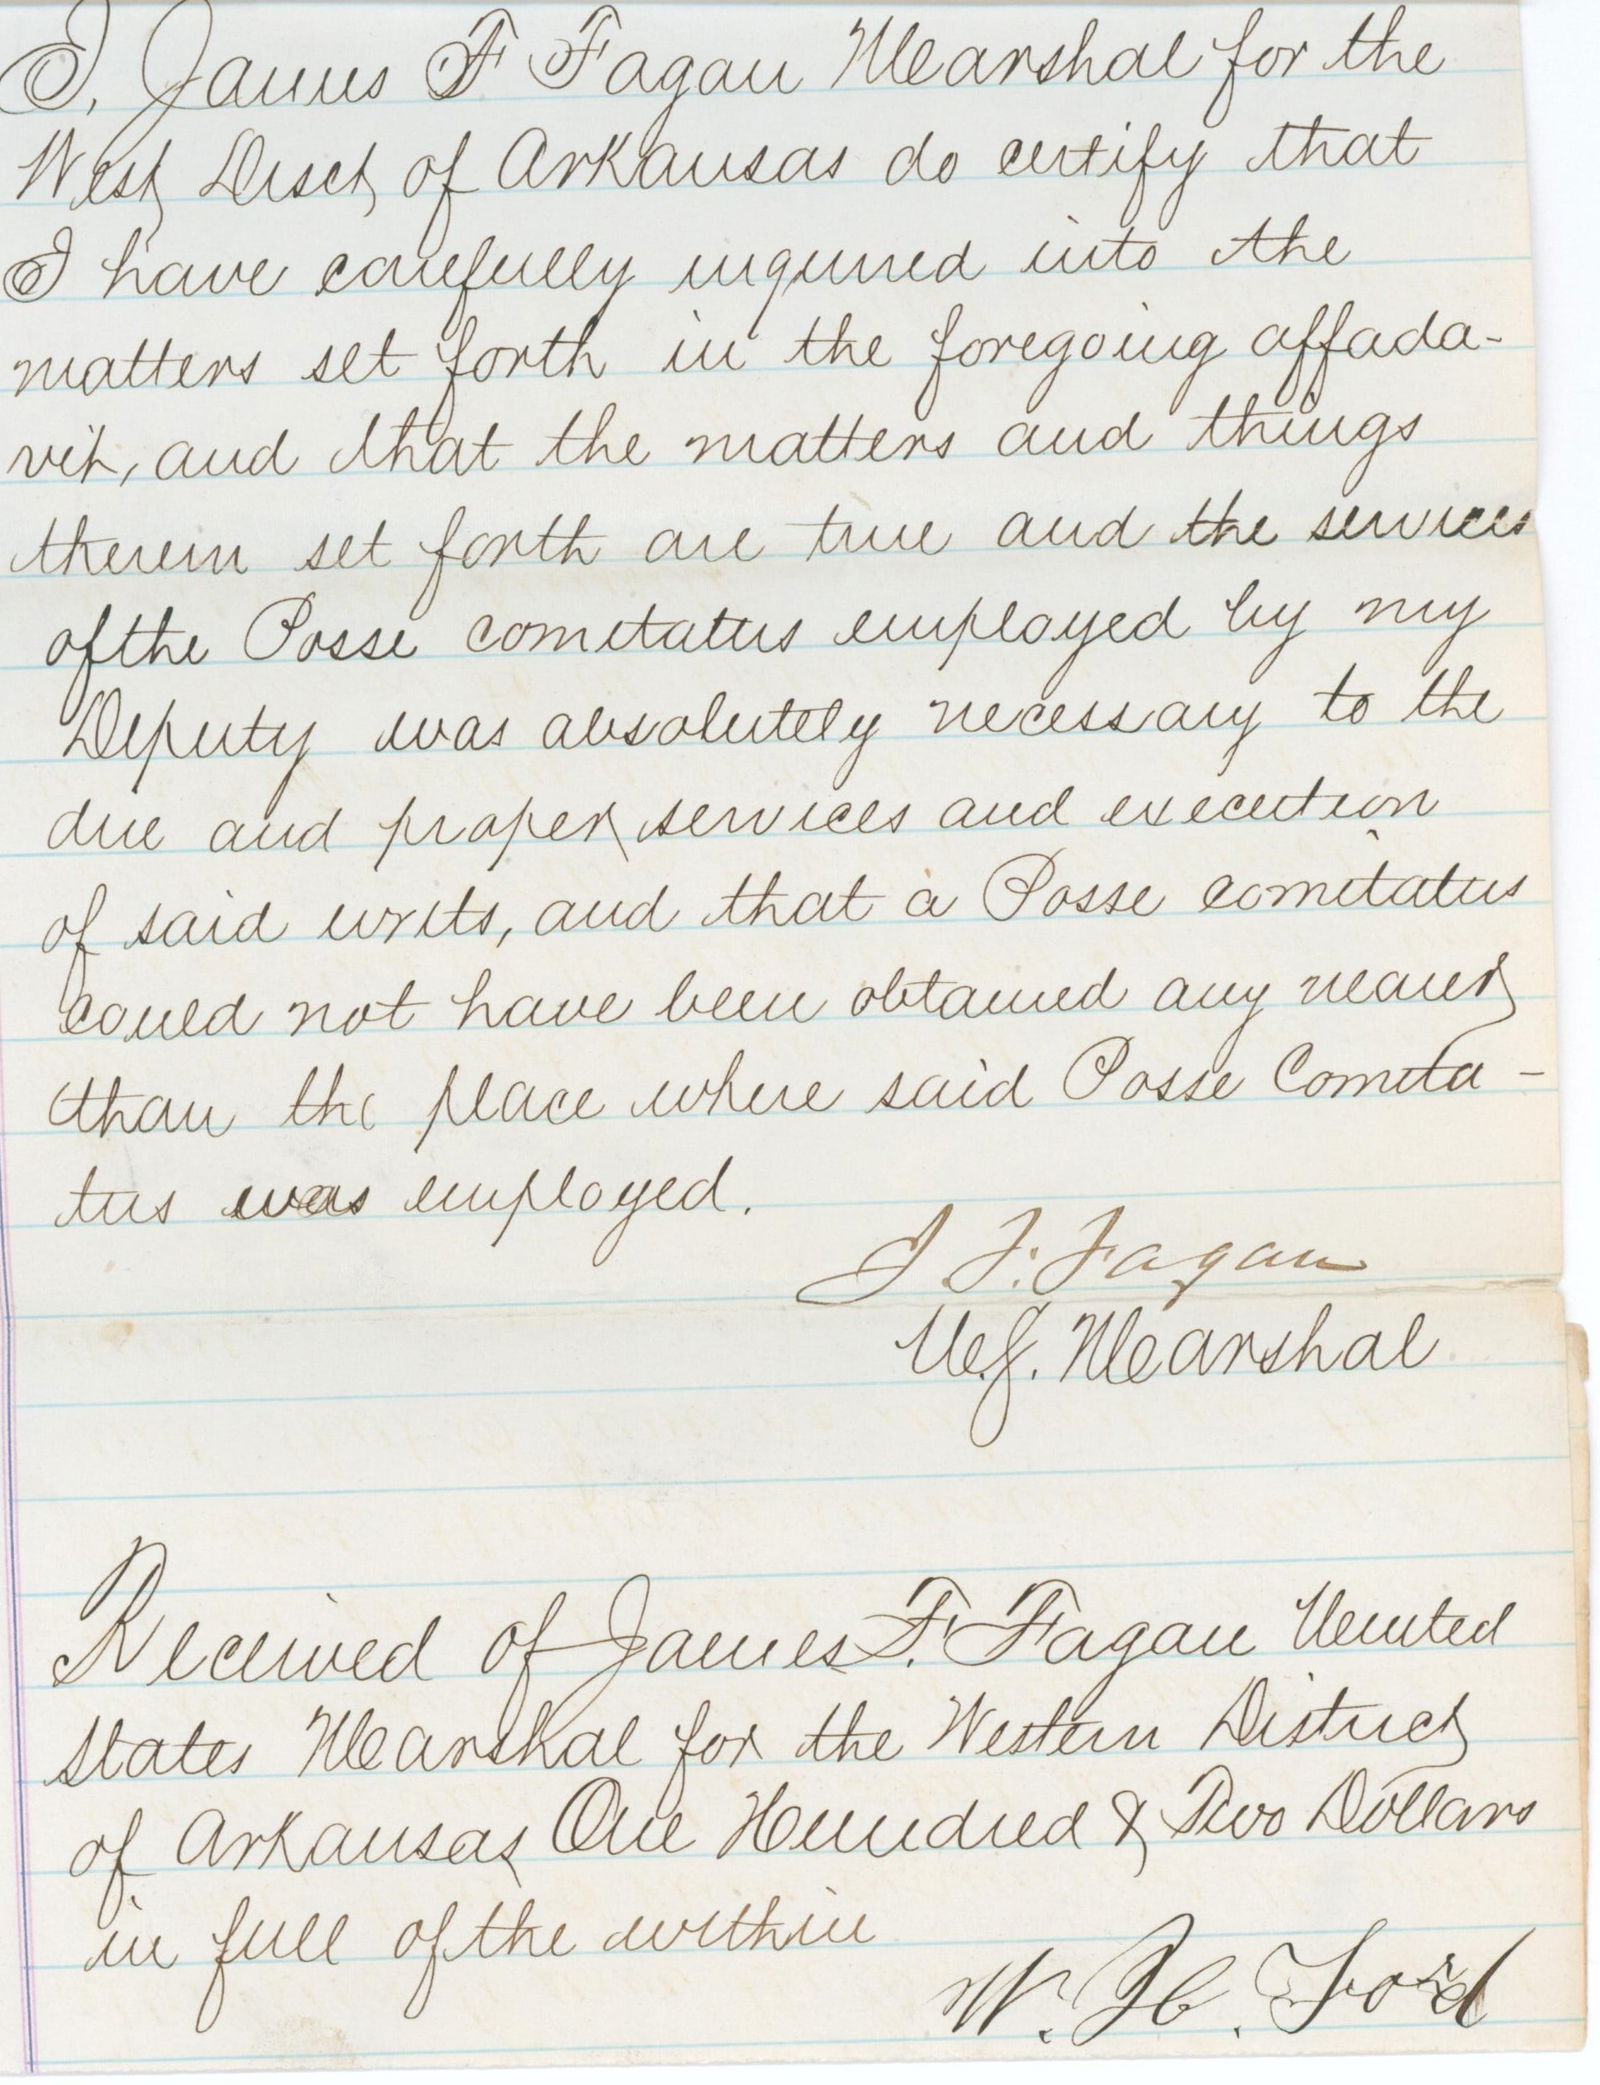 I, James F Fagan Marshal for the
West Disct of Arkansas do certify that
I have carefully inquired into the
matters set forth in the foregoing affada-
vit, and that the matters and things
therein set forth are true and the services
of the Posse comitatus employed by my
Deputy was absolutely necessary to the
due and proper services and execution
of said writs, and that a Posse comitatus
could not have been obtained any nearer
than the place where said Posse Comita-
tus was employed.
J. F. Fagan
U.S. Marshal
Received of James F. Fagan United
States Marshal for the Western District
of Arkansas One Hundred & Two Dollars
in full of the within
W. H. Ford